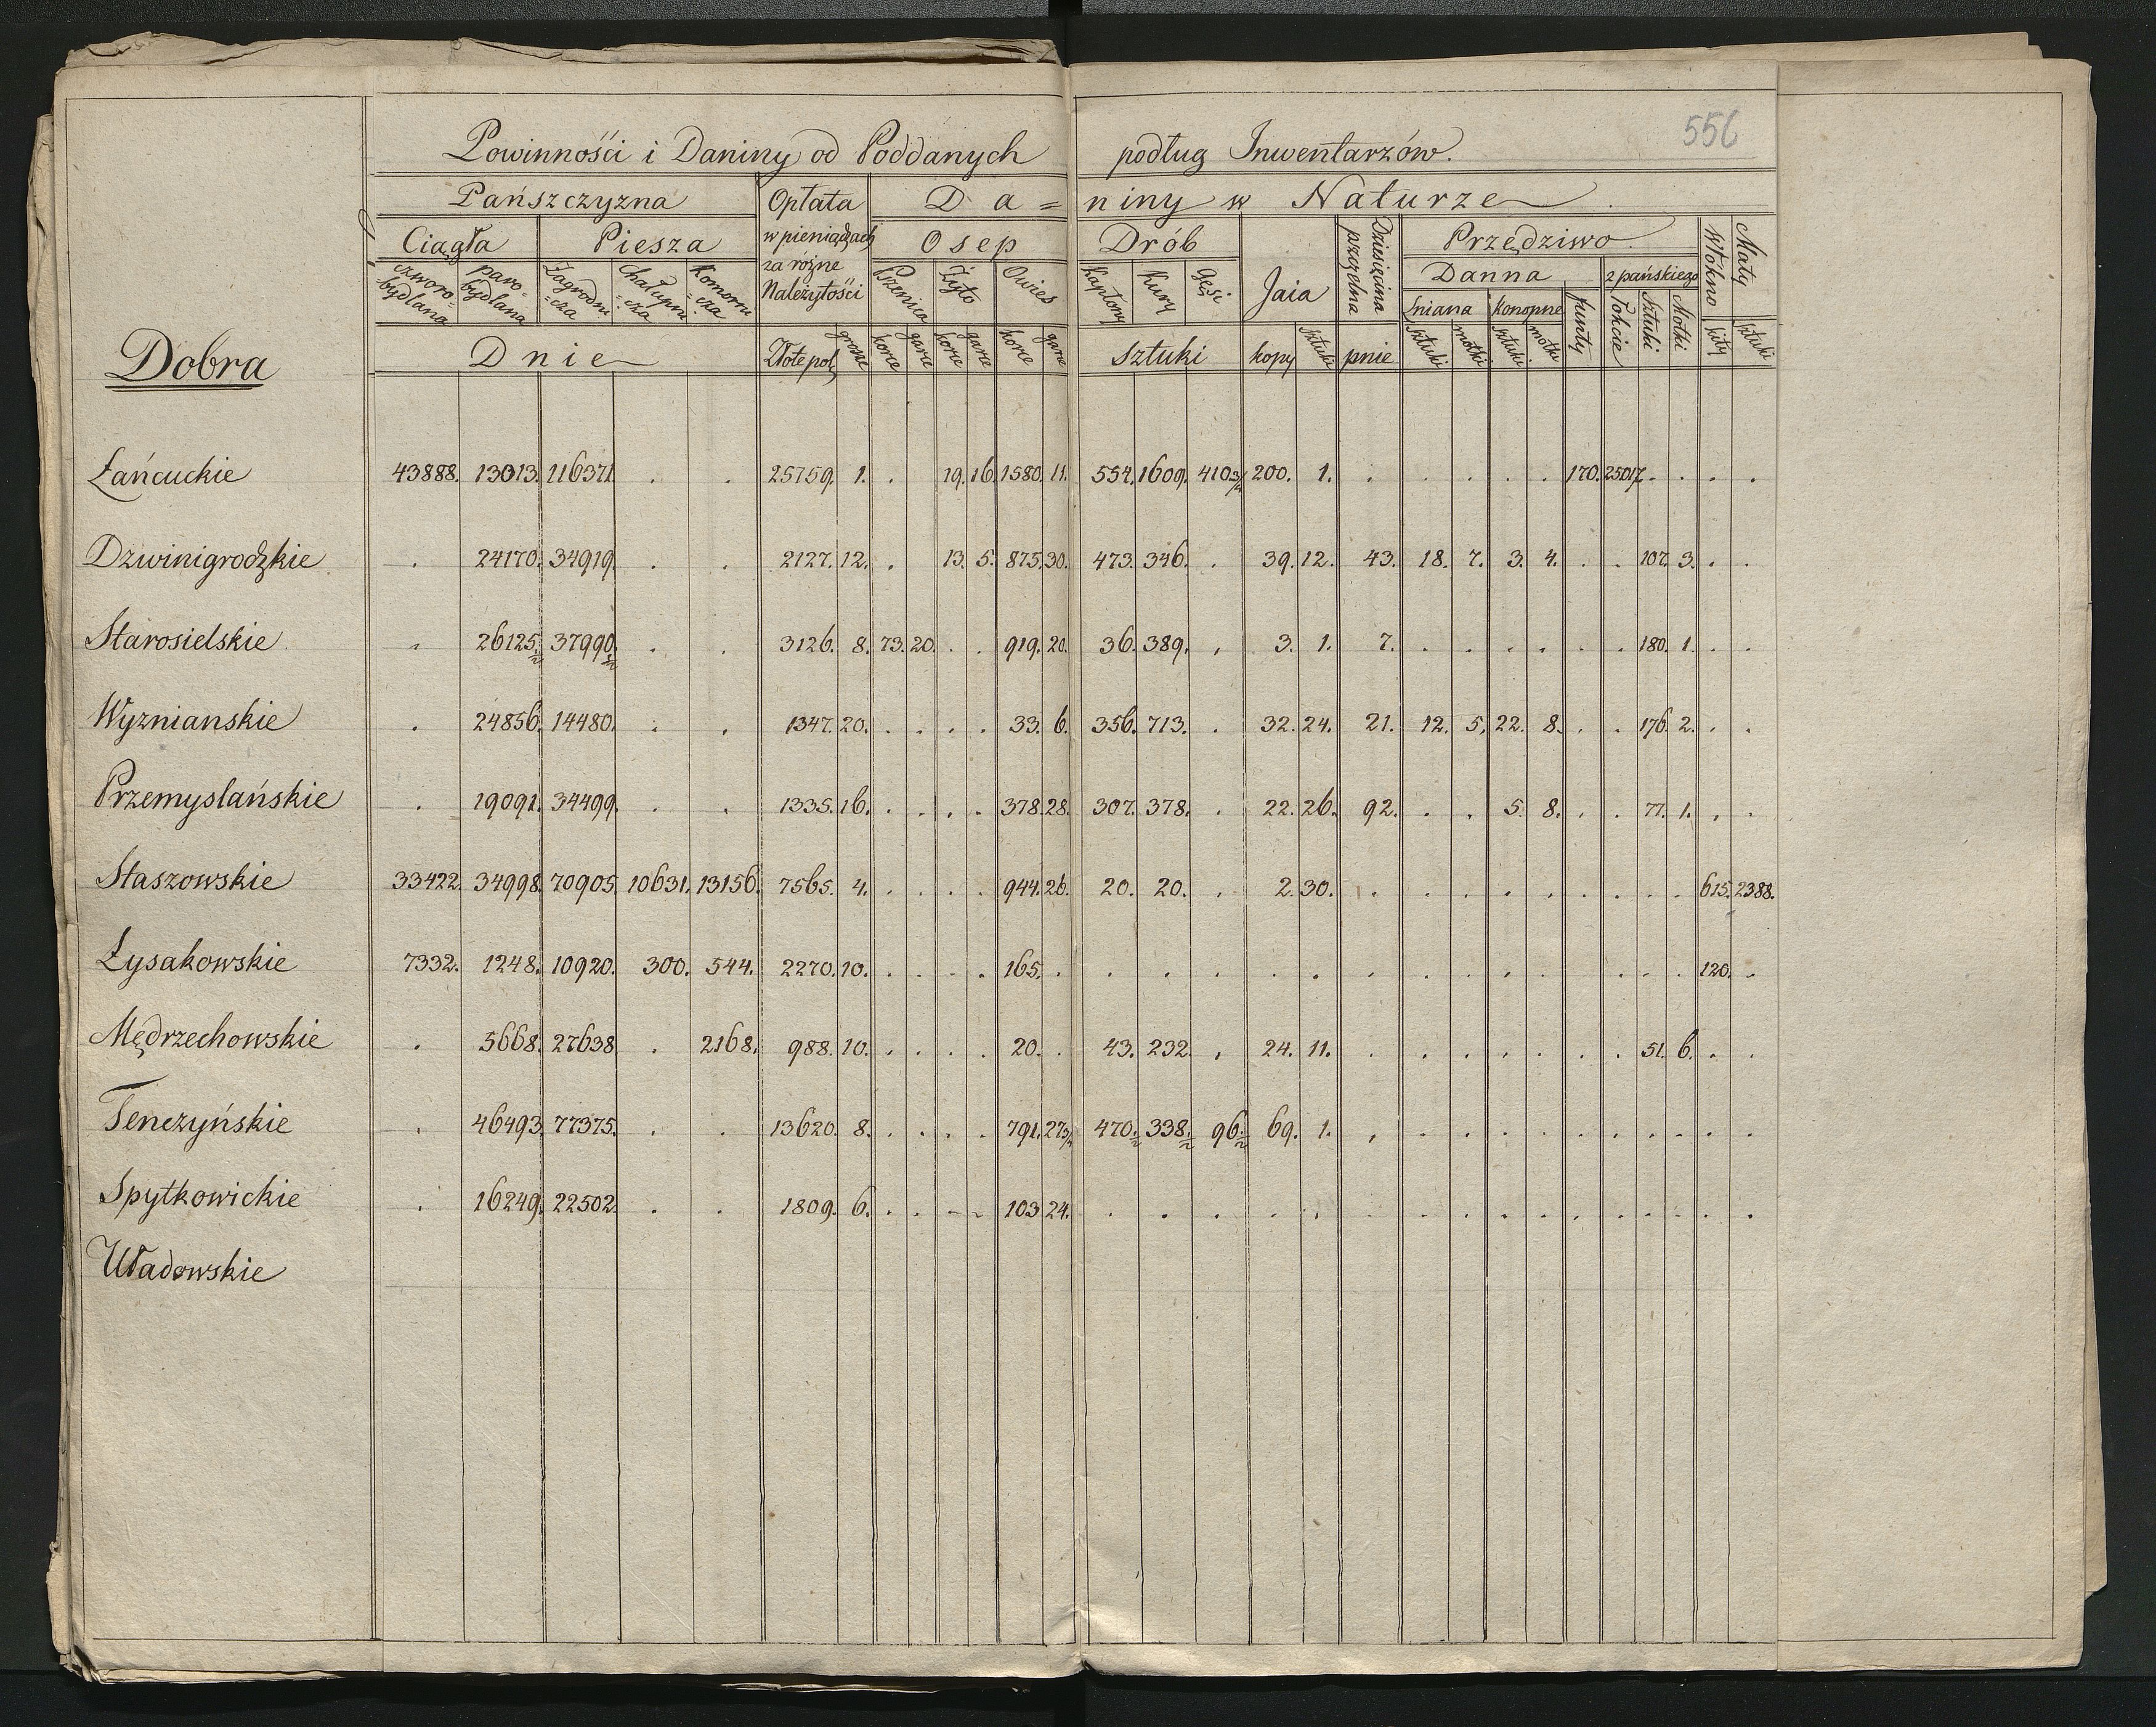 556
Powinności i Daniny od Poddanych podług Inwentarzów.
Pańszczyzna Opłata D a = niny w Naturze
Ciągła Piesza w pieniądzach za rózne Należytości Osep Drób Jaia Dziesięcina pszczelna Przędziwo Włókno Maty
czworo-bydlana paro-bydlana Zagrodni=cza Chałupni=cza Komorni=cza Pszenica Żyto Owies Kapłony Kury Gęsi Danna z pańskiego
lniana konopne funty Łokcie Sztuki Motki
Dobra Dnie Złote pol. grosze korce garce korce garce korce garce Sztuki kopy sztuki pnie sztuki motki sztuki motki kity sztuki
Łańcuckie 43888. 13013. 116371 . . 25759. 1. . 19. 16. 1580. 11. 554. 1609. 410 3/4 200. 1. . . . . . 170. 25017. . . . .
Dzwinigrodzkie . 24170. 34919. . . 2127. 12. . 13. 5. 875. 30. 473. 346. . 39. 12. 43. 18. 7. 3. 4. . . 107. 3. . .
Starosielskie . 26125. 37990. . . 3126. 8. 73. 20. . . 919. 20. 36. 389. . 3. 1. 7. . . . . . . 180. 1. . .
Wyznianskie . 24856. 14480. . . 1347. 20. . . . . 33. 6. 356. 713. . 32. 24. 21. 12. 5. 22. 8. . . 176. 2. . .
Przemyslańskie . 19091. 34499. . . 1335. 16. . . . . 378. 28. 307. 378. . 22. 26. 92. . . 5. 8. . . 77. 1. . .
Staszowskie 33422. 34998. 70905. 10631. 13156. 7565. 4. . . . . 944. 26. 20. 20. . 2. 30. . . . . . . . . . 615. 2388.
Łysakowskie 7332. 1248. 10920. 300. 544. 2270. 10. . . . . 165. . . . . . . . . . . . . . . 120. .
Mędrzechowskie . 5668. 27638. . 2168. 988. 10. . . . . 20. . 43. 232. . 24. 11. . . . . . . . 51. 6. . .
Tenczyńskie . 46493. 77375. . . 13620. 8. . . . . 791. 27 3/4 470. 338. 96. 69. 1. . . . . . . . . . . .
Spytkowickie . 16249. 22502. . . 1809. 6. . . . . 103. 24. . . . . . . . . . . . . . . . .
Uładowskie